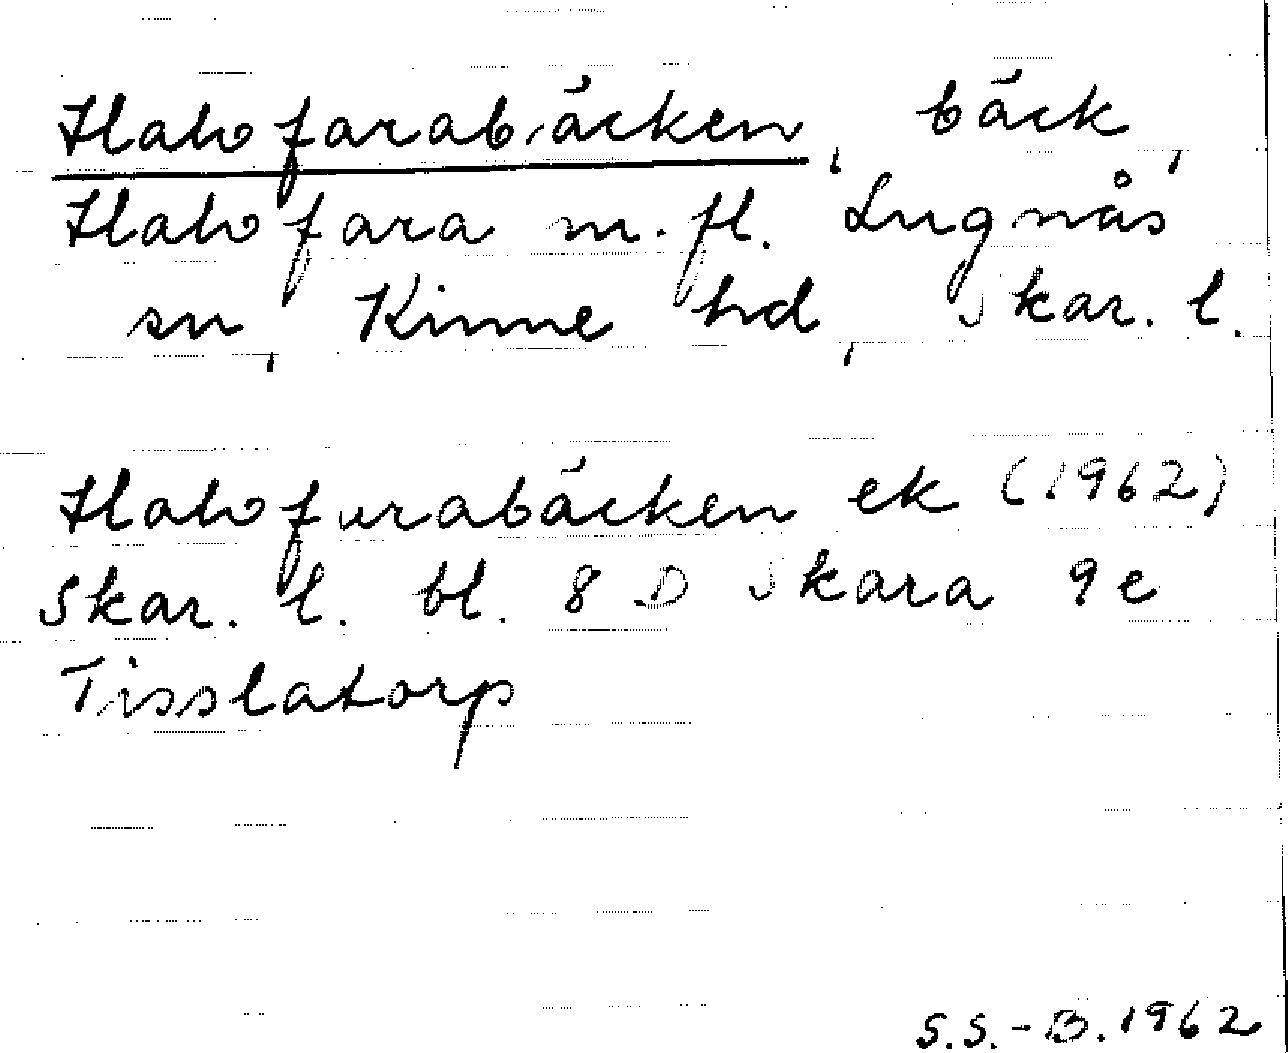 Halvfarabäcken, bäck,
Halvfara m. fl. Lugnås
sn, Kinne hd, Skar. l.
Halvfarabäcken ek (1962)
Skar. l. bl. 8 D Skara 9 e
Tisslatorp
S.S.-B. 1962